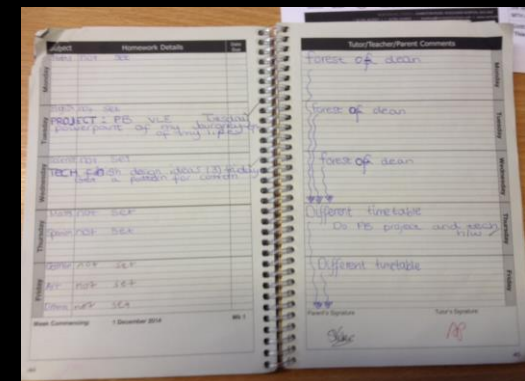 Subject Homework Details Date Due
Monday
not set
Tuesday
not set
PROJECT: PB VLE Tuesday
powerpoint of my journey
of my life
Wednesday
not set
TECH design ideas (3) friday
a pattern for comenth
Thursday
Maths not set
not set
Friday
not set
Art not set
not set
Week Commencing: 1 December 2014 Wk 1
Tutor/Teacher/Parent Comments
Monday
forest of dean
Tuesday
forest of dean
Wednesday
forest of dean
Thursday
Different timetable
Do PB project and tech
H/W
Friday
Different timetable
Parent's Signature Tutor's Signature